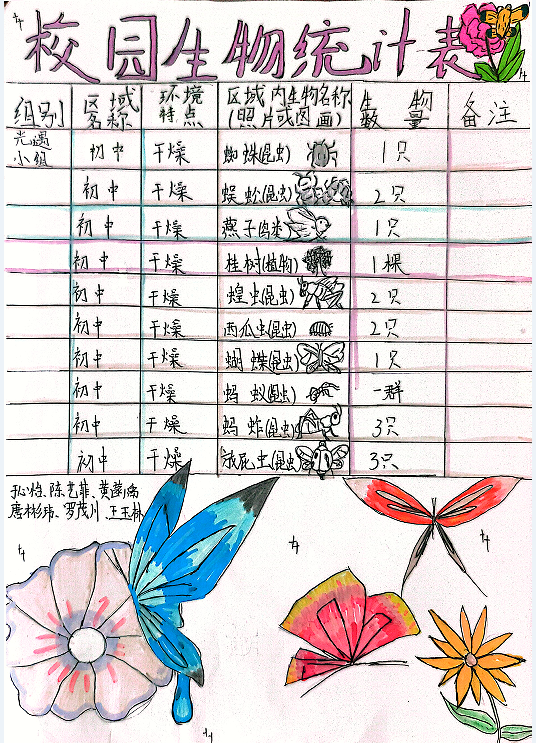 校园生物统计表
组别 区域名称 环境特点 区域内生物名称(照片或图画) 生物数量 备注
光遇小组 初中 干燥 蜘蛛(昆虫) 1只
初中 干燥 蜈蚣(昆虫) 2只
初中 干燥 燕子(鸟类) 1只
初中 干燥 桂树(植物) 1棵
初中 干燥 蝗虫(昆虫) 2只
初中 干燥 西瓜虫(昆虫) 2只
初中 干燥 蝴蝶(昆虫) 1只
初中 干燥 蚂蚁(昆虫) 一群
初中 干燥 蚂蚱(昆虫) 3只
初中 干燥 放屁虫(昆虫) 3只
陈艺菲、
唐彬玮、罗茂川、王玉林